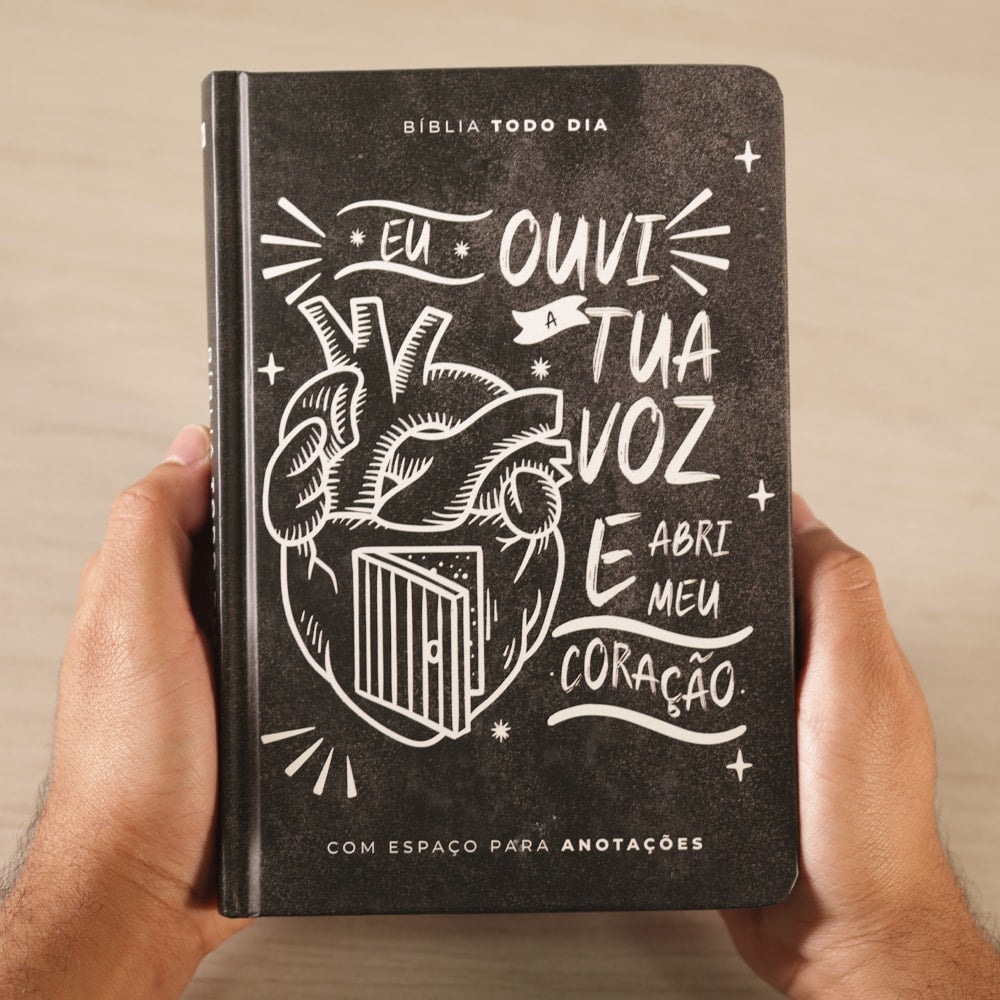 BÍBLIA TODO DIA
EU OUVI
A TUA
VOZ
E ABRI
MEU
CORAÇÃO
COM ESPAÇO PARA ANOTAÇÕES